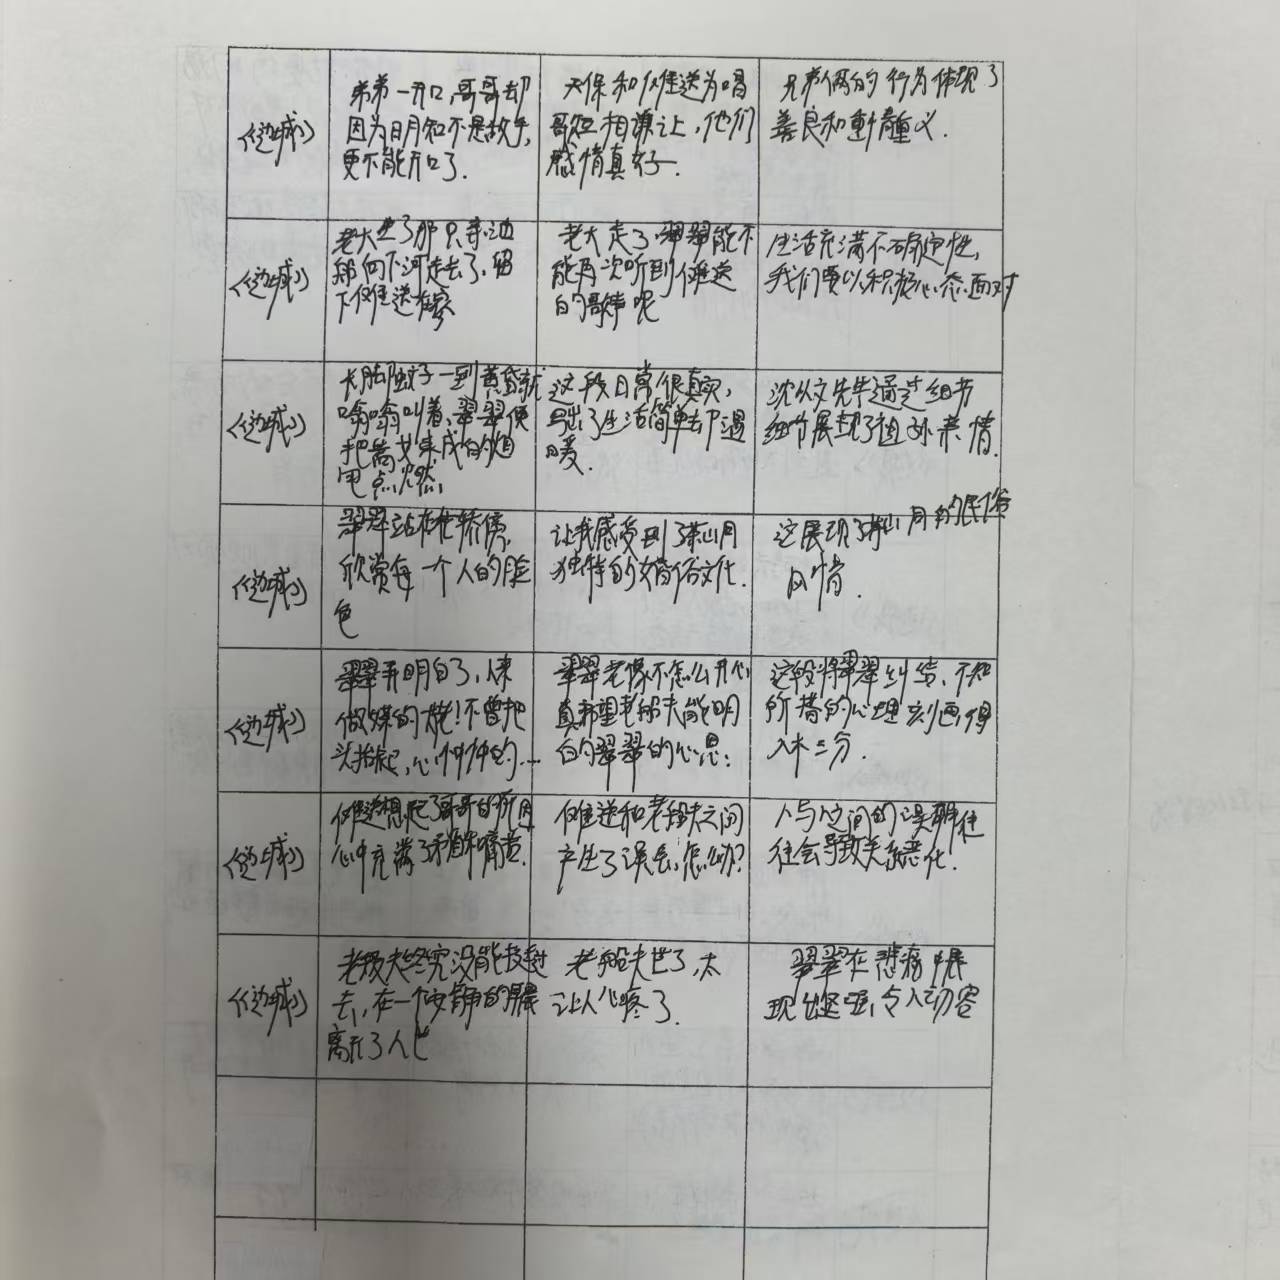 《边城》
弟弟一开口,哥哥却
因为明知不是敌手,
更不能开口了.
天保和傩送为唱
歌互相谦让,他们
感情真好.
兄弟俩的行为体现了
善良和重情重义.
《边城》
老大坐了那只新油
船向下河走去了,留
下傩送在家
老大走了,翠翠能不
能再次听到傩送
的歌声呢
生活充满不确定性,
我们要以积极心态面对
《边城》
长脚蚊子一到黄昏就
嗡嗡叫着,翠翠便
把蒿艾束成的烟
包点燃,
这段日常很真实,
写出了生活简单却温
暖.
沈从文先生通过细节
细节展现了祖孙亲情.
《边城》
翠翠站在花轿傍,
欣赏每一个人的脸
色
让我感受到了茶山
独特的婚俗文化.
这展现了 的民俗
风情.
《边城》
翠翠弄明白了,人来
做媒的 !不曾把
头抬起,心忡忡的...
翠翠老像不怎么开心
真希望老船夫能明
白翠翠的心思;
这段将翠翠纠结、不知
所措的心理刻画得
入木三分.
《边城》
傩送想起了哥哥的死因
心中充满了矛盾和痛苦.
傩送和老船夫之间
产生了误会,怎么办?
人与人之间的误解往
往会导致关系恶化.
《边城》
老船夫终究没能挨过
去,在一个安静的 晨
离开了人世
老船夫世了,太
让人心疼了.
翠翠在悲痛中展
现出坚强,令人动容